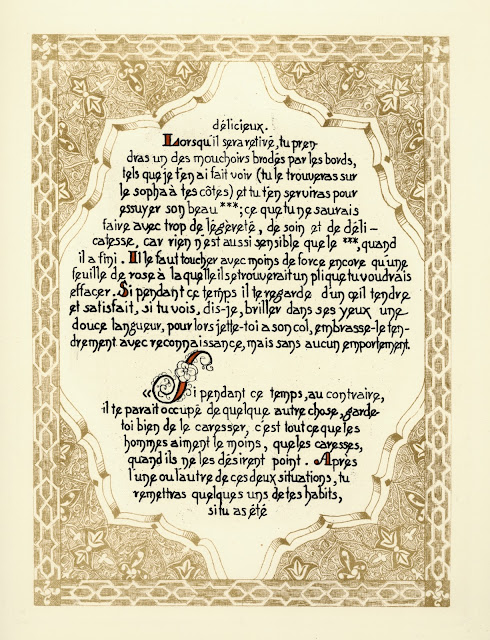 délicieux.
Lorsqu'il sera retiré, tu pren-
dras un des mouchoirs brodés par les bords,
tels que je t'en ai fait voir (tu le trouveras sur
le sopha à tes côtés) et tu t'en serviras pour
essuyer son beau ***; ce que tu ne saurais
faire avec trop de légèreté, de soin et de déli-
catesse, car rien n'est aussi sensible que le ***, quand
il a fini. Il le faut toucher avec moins de force encore qu'une
feuille de rose à laquelle il se trouverait un pli que tu voudrais
effacer. Si pendant ce temps il te regarde d'un œil tendre
et satisfait, si tu vois, dis-je, briller dans ses yeux une
douce langueur, pour lors jette-toi a son col, embrasse-le ten-
drement avec reconnaissance, mais sans aucun emportement.
« Si pendant ce temps, au contraire,
il te parait occupé de quelque autre chose, garde-
toi bien de le caresser, c'est tout ce que les
hommes aiment le moins, que les caresses,
quand ils ne les désirent point. Après
l'une ou l'autre de ces deux situations, tu
remettras quelques uns de tes habits,
si tu as été